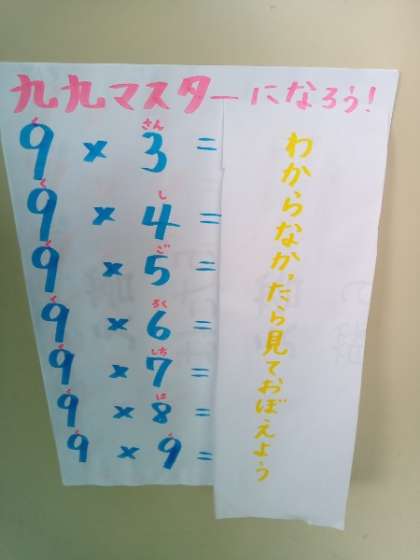 九九マスターになろう!
9 × 3 =
9 × 4 =
9 × 5 =
9 × 6 =
9 × 7 =
9 × 8 =
9 × 9 =
く さん
く し
く ご
く ろく
く しち
く は
く く
わからなかったら見ておぼえよう